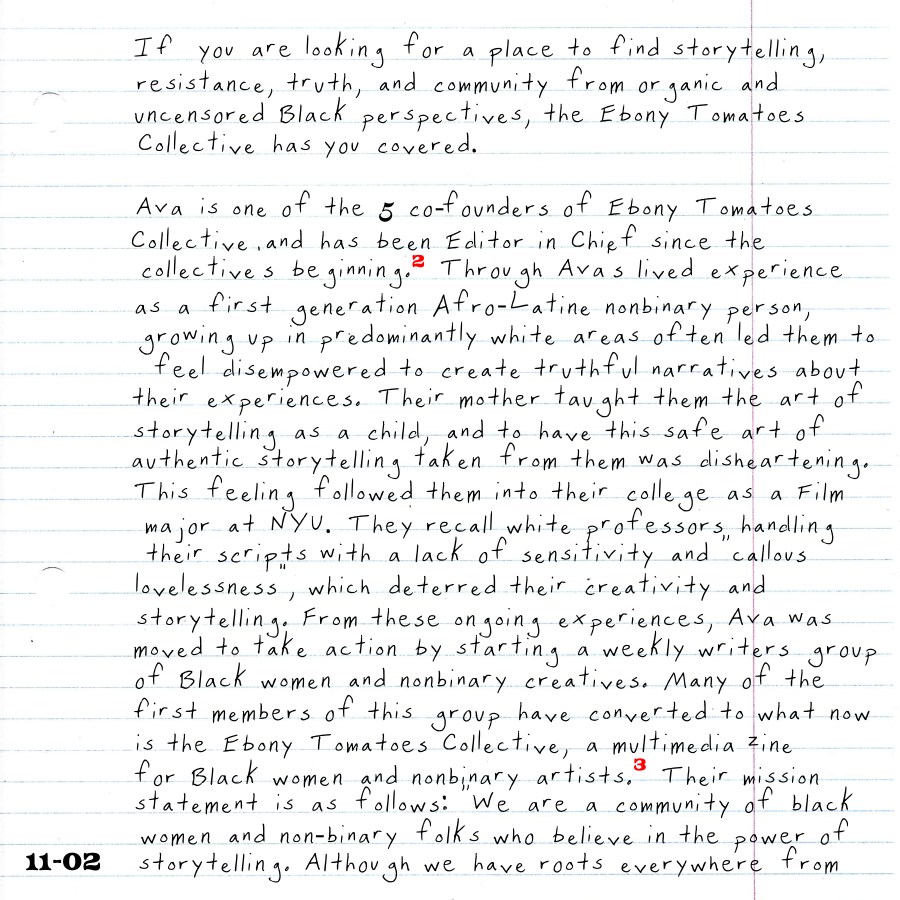 If you are looking for a place to find storytelling,
resistance, truth, and community from organic and
uncensored Black perspectives, the Ebony Tomatoes
Collective has you covered.
Ava is one of the 5 co-founders of Ebony Tomatoes
Collective, and has been Editor in Chief since the
collective s beginning.2 Through Ava s lived experience
as a first generation Afro-Latine nonbinary person,
growing up in predominantly white areas often led them to
feel disempowered to create truthful narratives about
their experiences. Their mother taught them the art of
storytelling as a child, and to have this safe art of
authentic storytelling taken from them was disheartening.
This feeling followed them into their college as a Film
major at NYU. They recall white professors „ handling
their scripts" with a lack of sensitivity and callous
lovelessness , which deterred their creativity and
storytelling. From these ongoing experiences, Ava was
moved to take action by starting a weekly writers group
of Black women and nonbinary creatives. Many of the
first members of this group have converted to what now
is the Ebony Tomatoes Collective, a multimedia zine
for Black women and nonbinary artists.3 Their mission
statement is as follows: "We are a community of black
women and non-binary folks who believe in the power of
11-02 storytelling. Although we have roots everywhere from